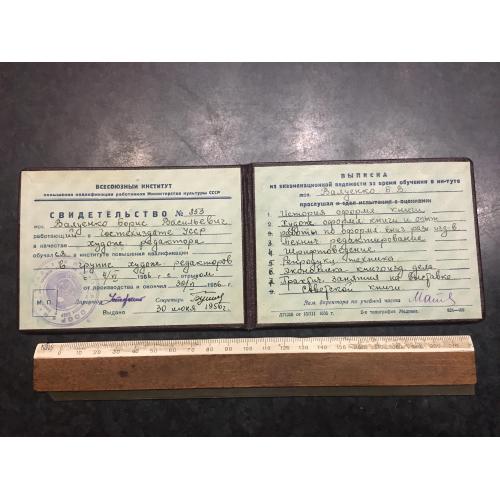 ВСЕСОЮЗНЫЙ ИНСТИТУТ
повышения квалификации работников Министерства культуры СССР
СВИДЕТЕЛЬСТВО № 353
тов. Валуенко Борис Васильевич
работающий в Гостехиздате УССР
в качестве худож. редактора
обучался в институте повышения квалификации
в группе худож. редакторов
с 2/IV 1956 г. с отрывом
от производства и окончил 30/VI 1956 г.
М. П. Директор Секретарь
Выдано 30 июня 1956 г.
ВЫПИСКА
из экзаменационной ведомости за время обучения в ин-туте
тов. Валуенко Б. В.
прослушал и сдал испытания с оценками
1. История оформ. книги
2. Худож. оформ. книги и
3. работы по оформ. изд-в
4. Технич. редактирование
5. Шрифтоведение
6. Репродукц. техника
7. Экономика книгоизд. дела
8. Практич. занятия на выставке
9. Советской книги
Зам. директора по учебной части
1956 г. 2-я типография
0 10 20 30 40 50 60 70 80